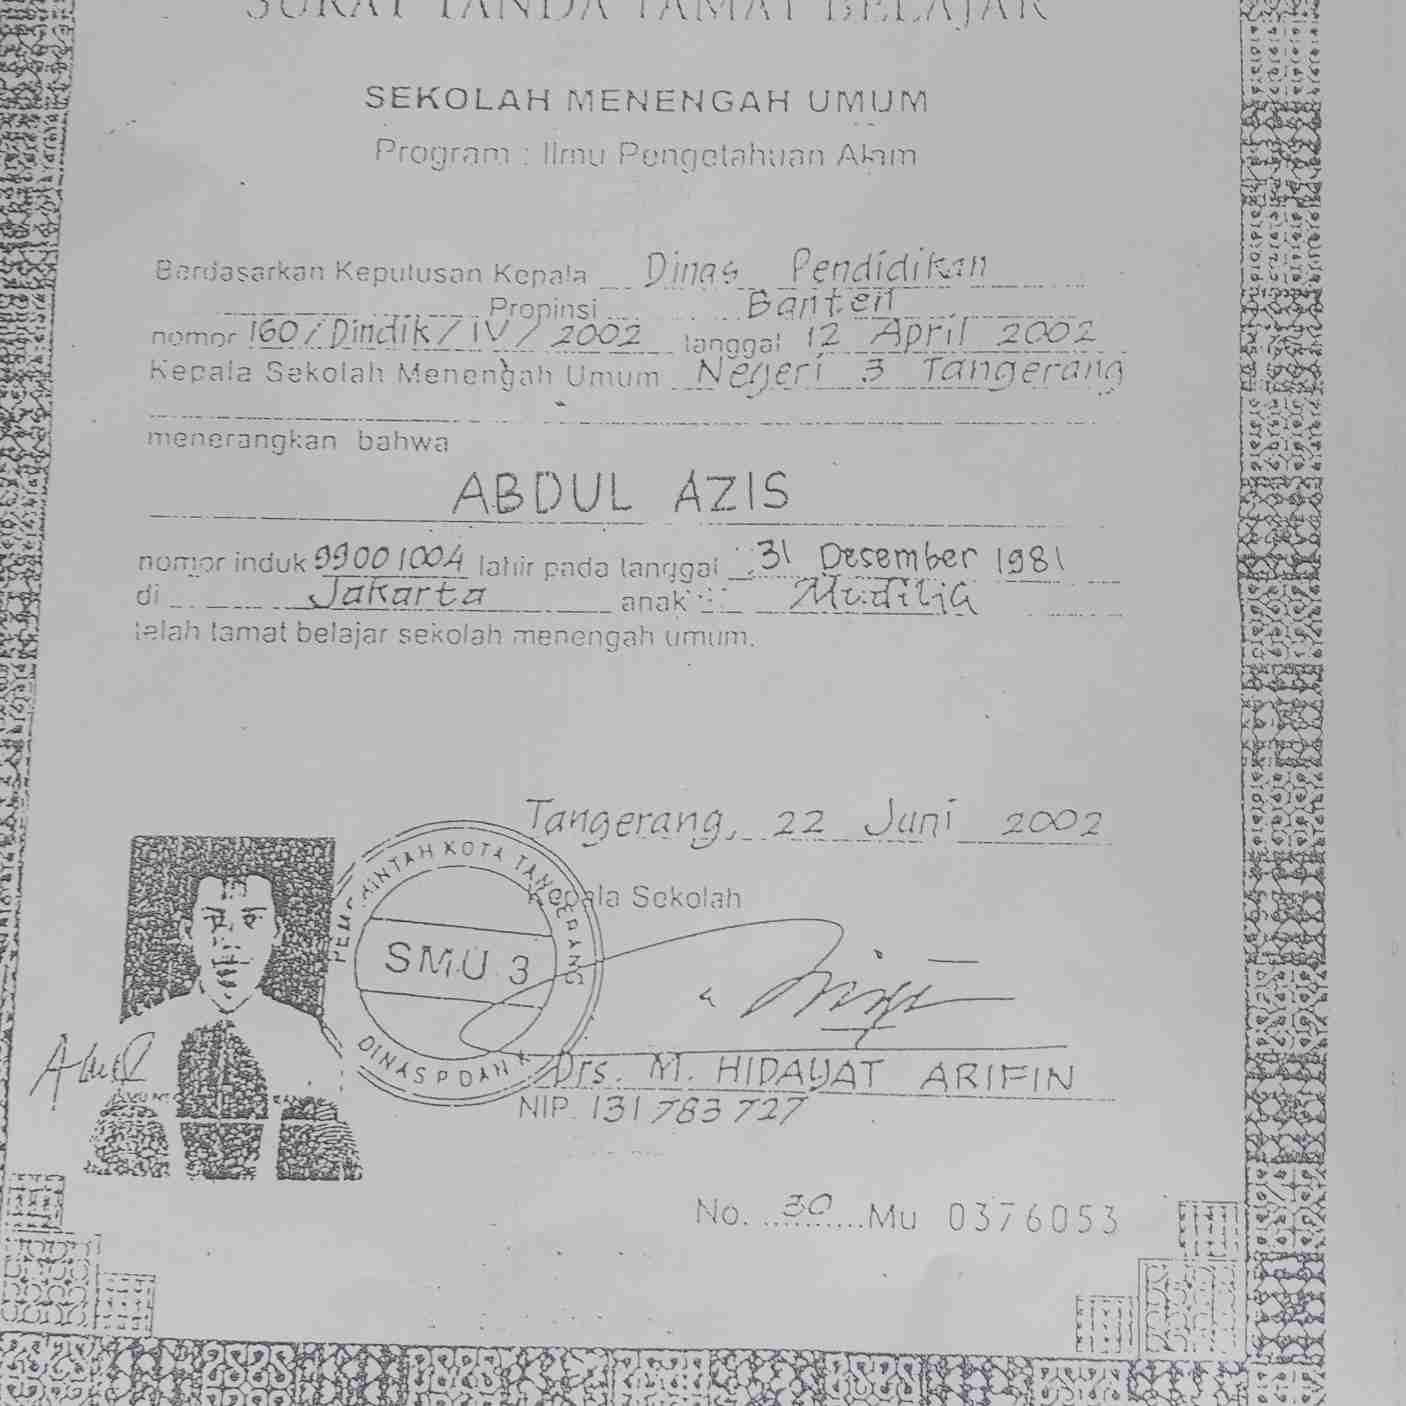 SURAT TANDA TAMAT BELAJAR
SEKOLAH MENENGAH UMUM
Program : Ilmu Pengetahuan Alam
Berdasarkan Keputusan Kepala Dinas Pendidikan
Propinsi Banten
nomor 160/Dindik/IV/2002 tanggal 12 April 2002
Kepala Sekolah Menengah Umum Negeri 3 Tangerang
menerangkan bahwa
ABDUL AZIS
nomor induk 99001004 lahir pada tanggal 31 Desember 1981
di Jakarta anak : Mudilia
telah tamat belajar sekolah menengah umum.
Tangerang, 22 Juni 2002
Kepala Sekolah
PEMERINTAH KOTA TANGERANG
SMU 3
DINAS P DAN K
Drs. M. HIDAYAT ARIFIN
NIP. 131 783 727
No. 30 Mu 0376053